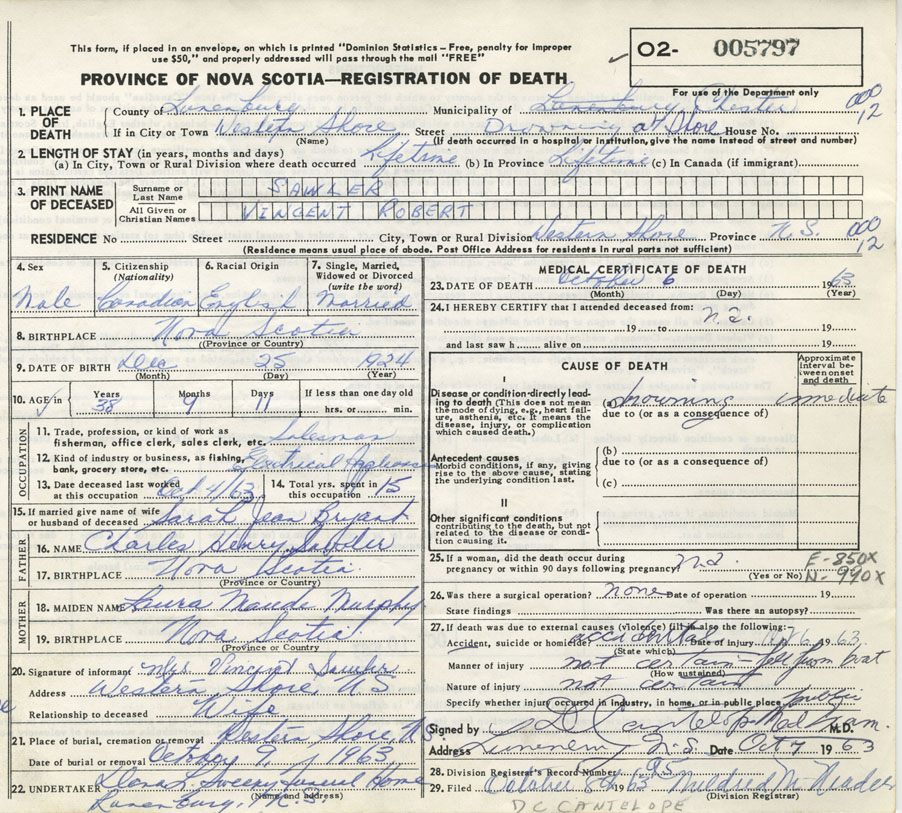 This form, if placed in an envelope, on which is printed "Dominion Statistics – Free, penalty for improper
use $50," and properly addressed will pass through the mail "FREE"
O2- 005797
For use of the Department only
PROVINCE OF NOVA SCOTIA—REGISTRATION OF DEATH
1. PLACE OF DEATH
County of Lunenburg Municipality of Lunenburg Chester 000 12
If in City or Town Western Shore Street Drowning at Shore House No.
(Name) (If death occurred in a hospital or institution, give the name instead of street and number)
2. LENGTH OF STAY (in years, months and days)
(a) In City, Town or Rural Division where death occurred Lifetime (b) In Province Lifetime (c) In Canada (if immigrant)
3. PRINT NAME OF DECEASED
Surname or Last Name SAWLER
All Given or Christian Names VINCENT ROBERT
RESIDENCE No Street City, Town or Rural Division Western Shore Province N.S. 000 12
(Residence means usual place of abode. Post Office Address for residents in rural parts not sufficient)
4. Sex Male
5. Citizenship (Nationality) Canadian
6. Racial Origin English
7. Single, Married, Widowed or Divorced (write the word) Married
8. BIRTHPLACE Nova Scotia
(Province or Country)
9. DATE OF BIRTH Dec 25 1924
(Month) (Day) (Year)
10. AGE in Years 38 Months 9 Days 11 If less than one day old hrs. or min.
OCCUPATION
11. Trade, profession, or kind of work as fisherman, office clerk, sales clerk, etc. Salesman
12. Kind of industry or business, as fishing, bank, grocery store, etc. Electrical Appliances
13. Date deceased last worked at this occupation Oct 4/63
14. Total yrs. spent in this occupation 15
15. If married give name of wife or husband of deceased Sarah Jean Bryant
FATHER
16. NAME Charles Henry Sawler
17. BIRTHPLACE Nova Scotia
(Province or Country)
MOTHER
18. MAIDEN NAME Laura Maude Murphy
19. BIRTHPLACE Nova Scotia
(Province or Country)
20. Signature of informant Mrs. Vincent Sawler
Address Western Shore, NS
Relationship to deceased Wife
21. Place of burial, cremation or removal Western Shore, N.S.
Date of burial or removal October 9, 1963
22. UNDERTAKER Sweeny Funeral Home
(Name and address)
Lunenburg, N.S.
MEDICAL CERTIFICATE OF DEATH
23. DATE OF DEATH October 6 1963
(Month) (Day) (Year)
24. I HEREBY CERTIFY that I attended deceased from: n.a.
19 to 19
and last saw h alive on 19
CAUSE OF DEATH
Approximate interval between onset and death
I
Disease or condition directly leading to death (This does not mean the mode of dying, e.g., heart failure, asthenia, etc. It means the disease, injury, or complication which caused death.)
(a) Drowning immediate
due to (or as a consequence of)
Antecedent causes
Morbid conditions, if any, giving rise to the above cause, stating the underlying condition last.
(b)
due to (or as a consequence of)
(c)
II
Other significant conditions
contributing to the death, but not related to the disease or condition causing it.
25. If a woman, did the death occur during pregnancy or within 90 days following pregnancy n.a.
(Yes or No)
E-850X
N-990X
26. Was there a surgical operation? none Date of operation 19
State findings Was there an autopsy?
27. If death was due to external causes (violence) fill in also the following:
Accident, suicide or homicide? accidental Date of injury Oct 6 1963
(State which)
Manner of injury not certain - fell from boat
(How sustained)
Nature of injury not certain
Specify whether injury occurred in industry, in home, or in public place public
Signed by D Cantelope M.D.
Address Lunenburg N.S. Date Oct 7 1963
28. Division Registrar's Record Number 95
29. Filed October 8th 1963 Mildred M
(Division Registrar)
D C CANTELOPE